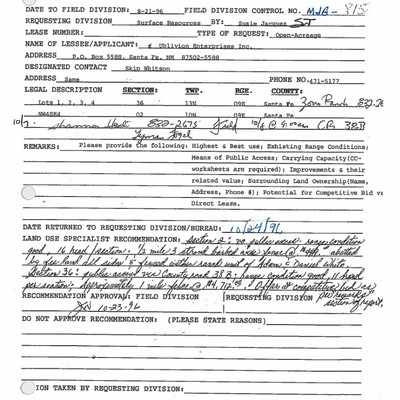 DATE TO FIELD DIVISION: 8-21-96 FIELD DIVISION CONTROL NO. MJA-815
REQUESTING DIVISION Surface Resources BY: Suzie Jaquez SJ
LEASE NUMBER: TYPE OF REQUEST: Open-Acreage
NAME OF LESSEE/APPLICANT: Ublivion Enterprises Inc.
ADDRESS P.O. Box 5588, Santa Fe, NM 87502-5588
DATED BY Skip Whitson
ADDRESS Same PHONE NO. 471-5177
LEGAL DESCRIPTION SECTION: TWP. RGE. COUNTY:
Lots 1, 2, 3, 4 36 13N 09E Santa Fe
NW4SE4 02 10N 09E Santa Fe
REMARKS: Please provide the following: Highest & Best use; Exhisting Range Conditions;
Means of Public Access; Carrying Capacity(CC-
worksheets are required); Improvements & their
related value; Surrounding Land Ownership(Name,
Address, Phone #); Potential for Competitive Bid vs
Direct Lease.
DATE RETURNED TO REQUESTING DIVISION/BUREAU: 10/24/96
LAND USE SPECIALIST RECOMMENDATION: Section 2: no public access range condition
good, 16 head/section. 1/2 mile 3 strand barbed wire fence @
by fee land all sides & fenced within ranch unit of Adam & Daniel White
Section 36: public access via County road 38B; range condition good, 11 head
per section; approximately 1 mile fence @ $4,712.00. Offer at competitive bid
per remarks
section of report.
RECOMMENDATION APPROVAL: FIELD DIVISION REQUESTING DIVISION
10-23-96
DO NOT APPROVE RECOMMENDATION: (PLEASE STATE REASONS)
ION TAKEN BY REQUESTING DIVISION: